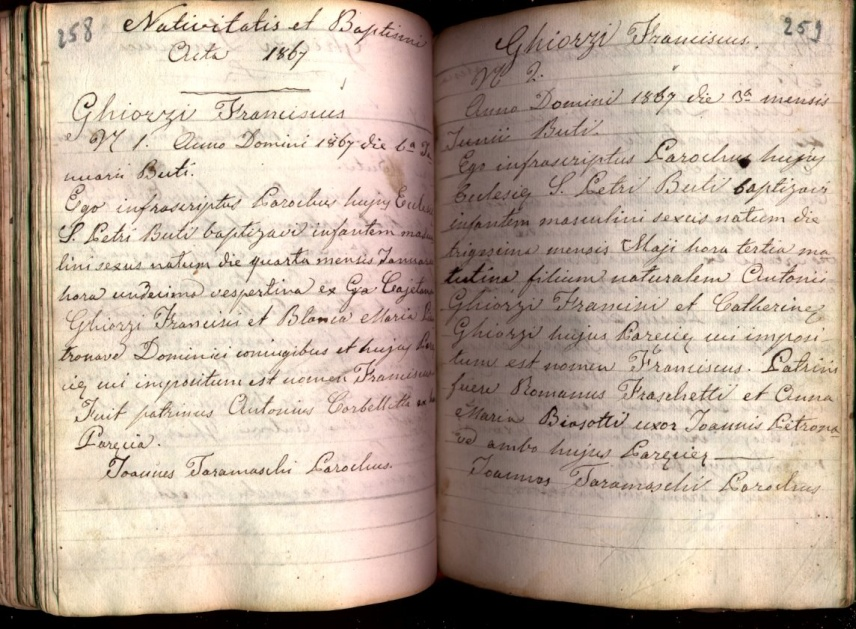 258
Nativitatis et Baptismi
Acta 1867
Ghiorzi Franciscus
N 1. Anno Domini 1867 die 6a Ja
nuarii Buti.
Ego infrascriptus Parochus hujus Eccles
S. Petri Buti baptizavi infantem mascu
lini sexus natum die quarta mensis Januarii
hora undecima vespertina ex
Ghiorzi Francisci et Blanca Maria
tronave Dominici conjugibus et hujus
cui impositum est nomen Franciscus
Fuit patrinus Antonius Corbelletta ex
Parecia.
Joannes Taramaschi Parochus.
259
Ghiorzi Franciscus.
N 2.
Anno Domini 1867 die 3a mensis
Junii Buti.
Ego infrascriptus Parochus hujus
Ecclesię S. Petri Buti baptizavi
infantem masculini sexus natum die
trigesima mensis Maji hora tertia ma
tutina filium naturalem Antonii
Ghiorzi Francisci et Catherinę
Ghiorzi hujus Parecię cui imposi-
tum est nomen Franciscus. Patrini
fuere Romanus Fraschetti et Anna
Maria Biasotti uxor Joannis Petrona
ve ambo hujus Pareciej
Joannes Taramaschi Parochus